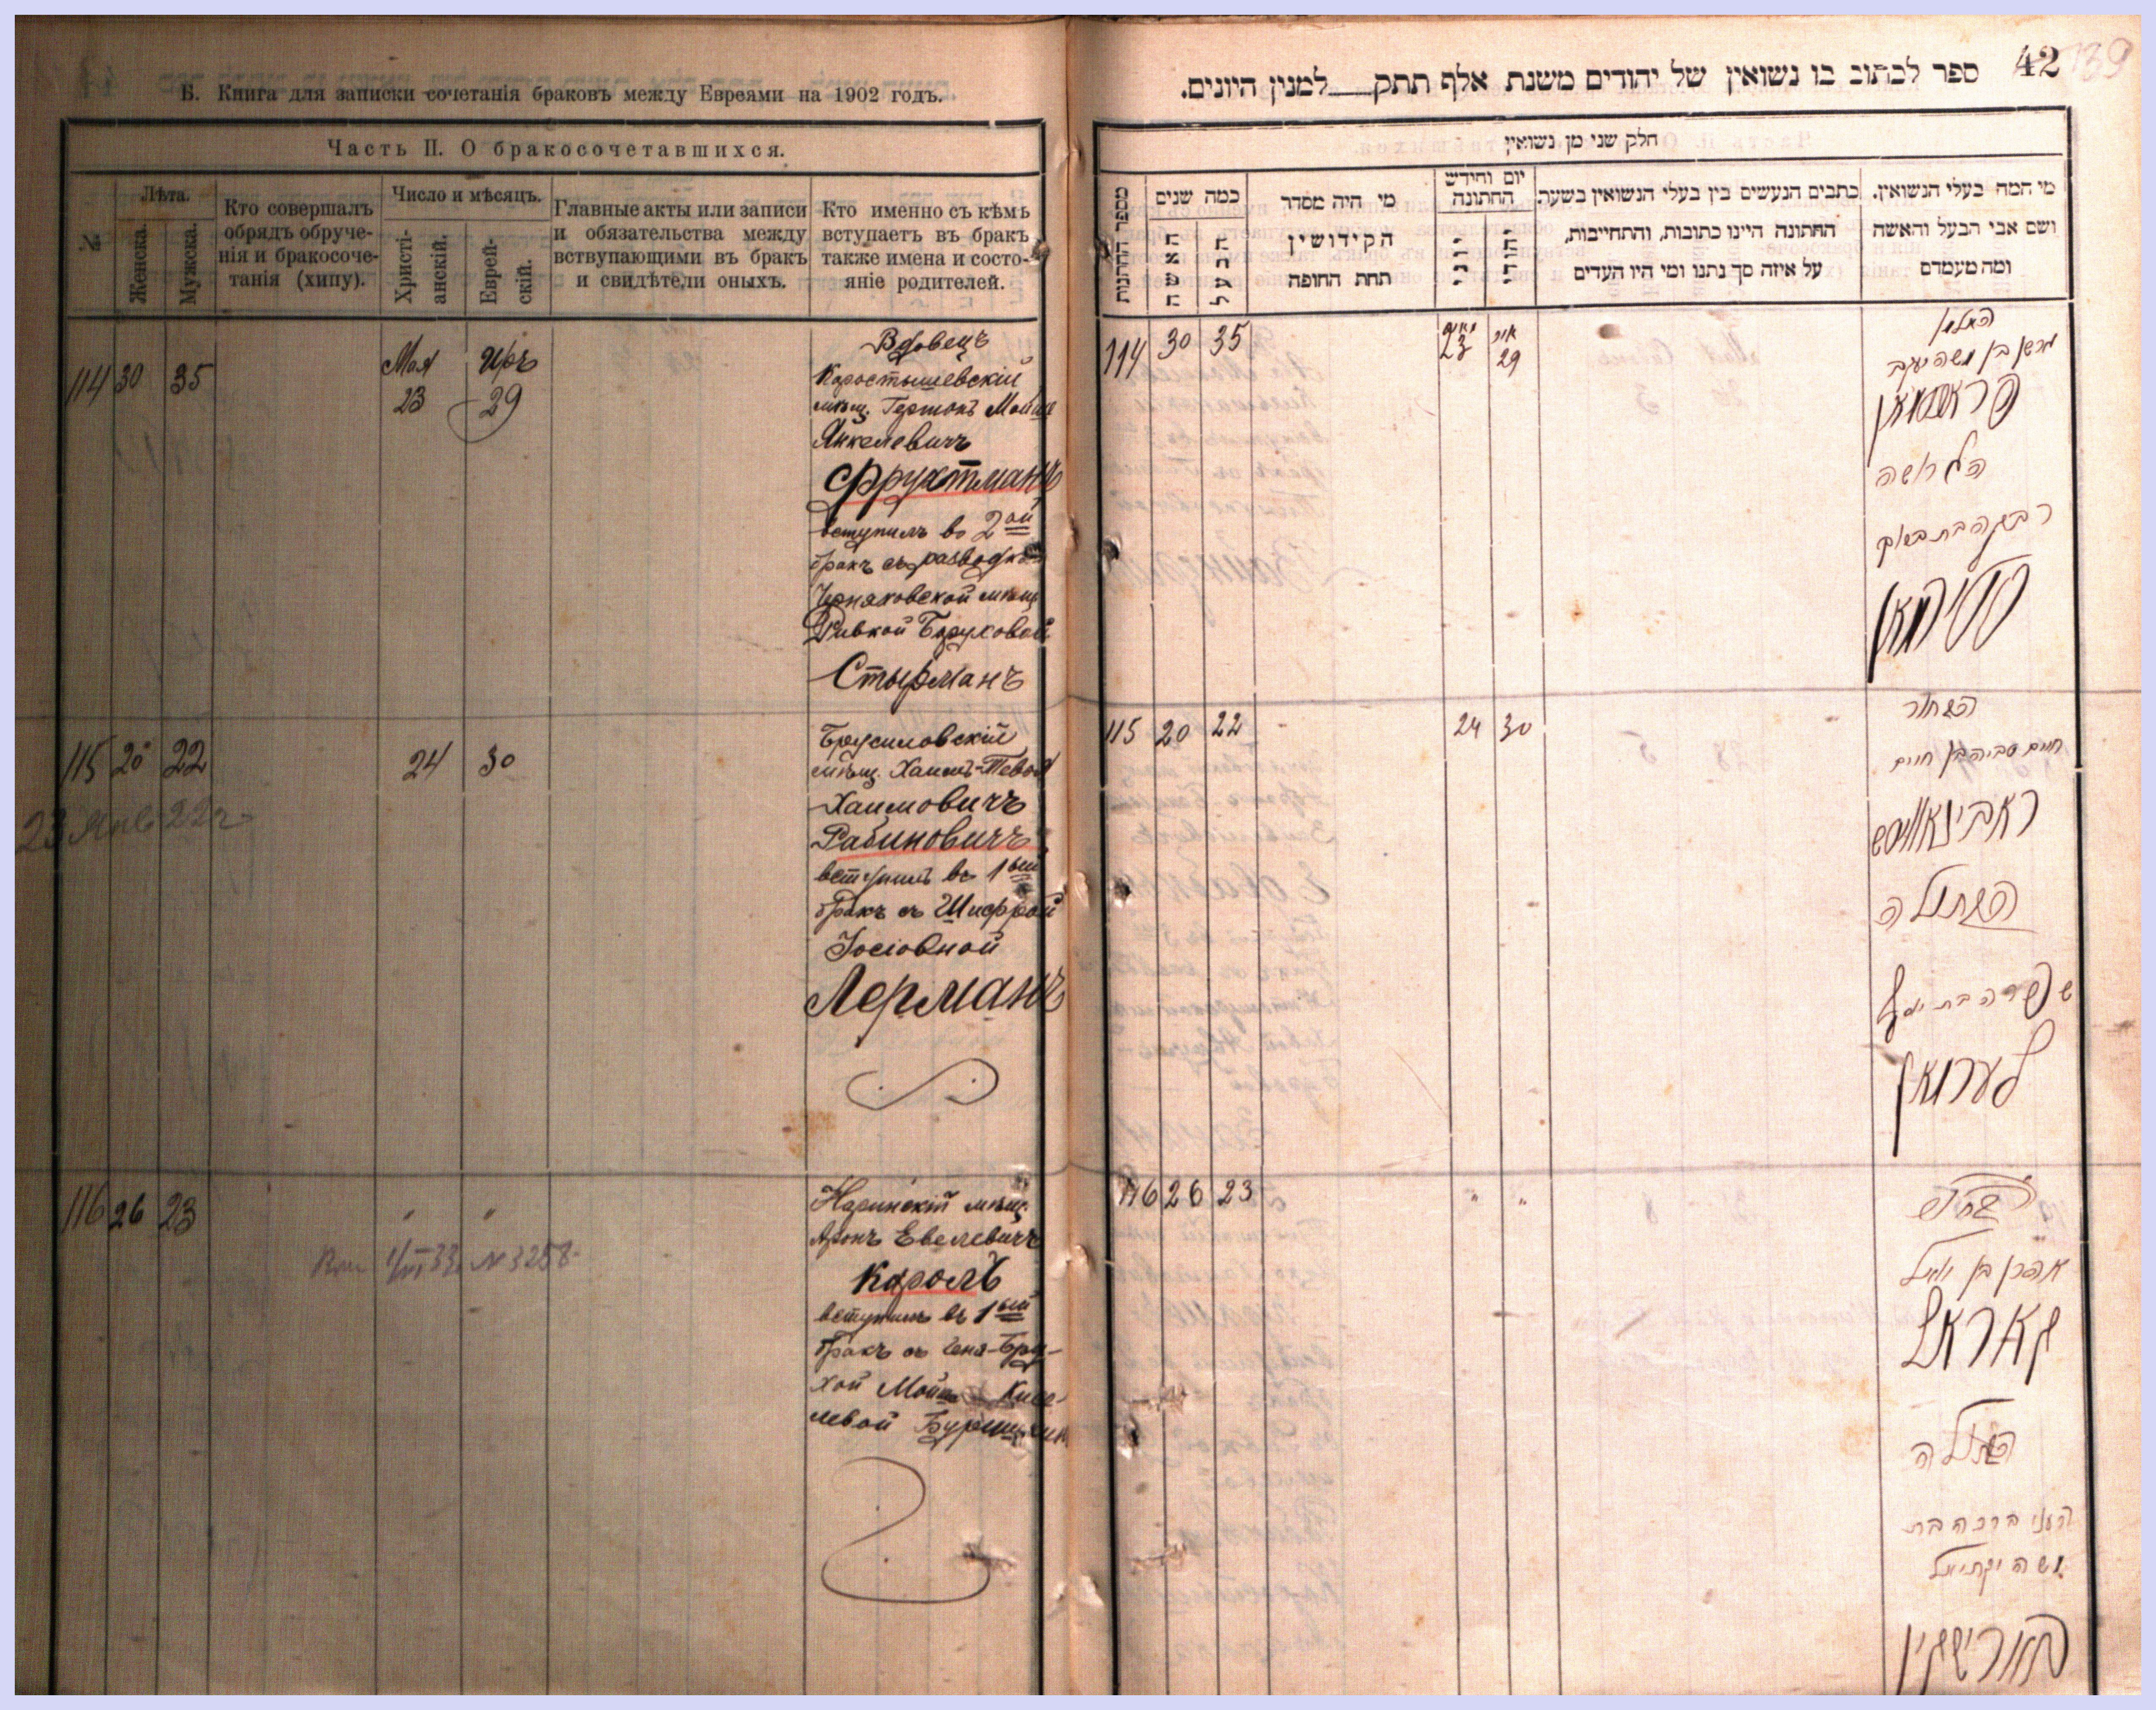 Б. Книга для записки сочетанія браковъ между Евреями на 1902 годъ.
Часть II. О бракосочетавшихся.
№
Лѣта.
Женска.
Мужска.
Кто совершалъ
обрядъ обруче-
нія и бракосоче-
танія (хипу).
Число и мѣсяцъ.
Христі-
анскій.
Еврей-
скій.
Главные акты или записи
и обязательства между
вствупающими въ бракъ
и свидѣтели оныхъ.
Кто именно съ кѣмъ
вступаетъ въ бракъ
также имена и состо-
яніе родителей.
114 30 35
Мая 23
Иръ 29
Вдовецъ
Коростышевскій
мѣщ. Гершонъ Мошко
Янкелевичъ
Фрухтманъ
вступилъ во 2ой
бракъ съ разводкой
Черняховской мѣщ
Ривкой Боруховой
Стырманъ
115 20 22 24 30
Брусиловскій
мѣщ. Хаимъ-Тевья
Хаимовичъ
Рабиновичъ
вступилъ въ 1ый
бракъ съ Шифрой
Іосіовной
Лерманъ
23 Янв 22г
116 26 23 " "
33 N 3258
Норинскій мѣщ.
Аронъ Евелевичъ
Король
вступилъ въ 1ый
бракъ съ Хеня-Бру-
хой
левой
42 139
ספר לכתוב בו נשואין של יהודים משנת אלף תתק__למנין היונים.
חלק שני מן נשואין
מספר החתונות
כמה שנים
האשה
הבעל
מי היה מסדר
הקידושין
תחת החופה
יום וחידש
החתונה
יוני
יהודי
כתבים הנעשים בין בעלי הנשואין בשעת
החתונה היינו כתובות, והתחייבות,
על איזה סך נתנו ומי היו העדים
מי המה בעלי הנשואין.
ושם אבי הבעל והאשה
ומה מעמדם
114 30 35 23 29
האלמן
גרשון בן משה יעקב
פראכטמאן
הגרושה
רבקה בת ברוך
סטירמאן
115 20 22 24 30
הבחור
חיים טביה בן חיים
ראבינאוויטש
הבתולה
שפרה בת יוסף
לערמאן
116 26 23 " "
אהרן בן
קאראל
הבתולה
העני ברכה בת
משה יקתיאל